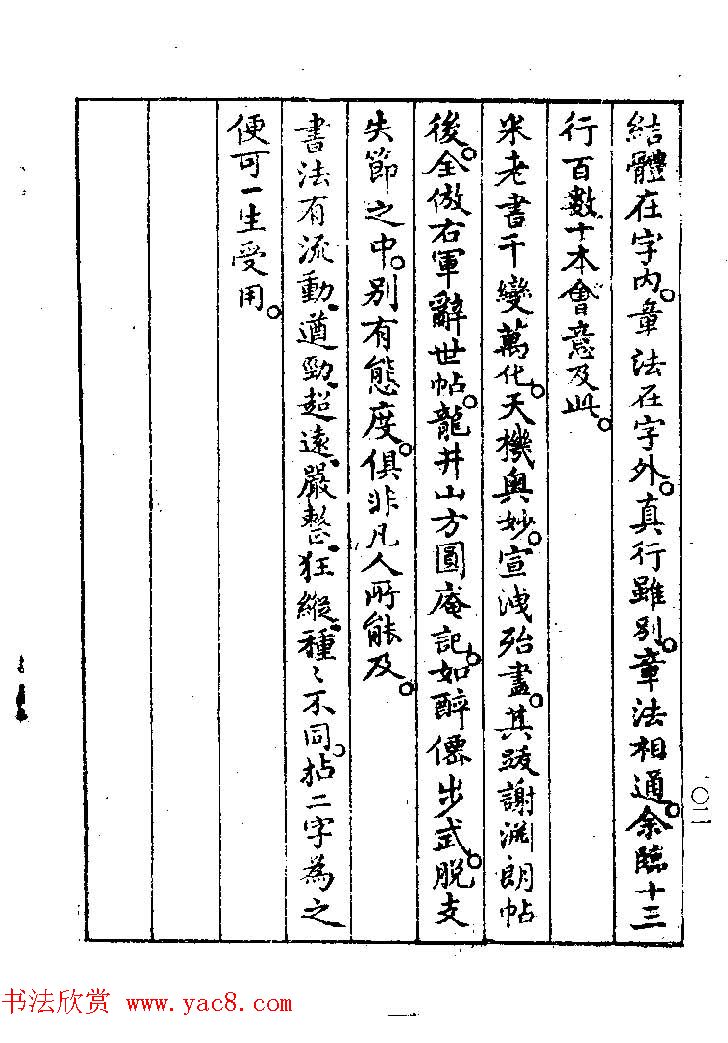 結體在字內。章法在字外。真行雖別。章法相通。余臨十三
行百數十本會意及此。
米老書千變萬化。天機奥妙。宣洩殆盡。其跋謝淵朗帖
後。全倣右軍辭世帖。龍井山方圓庵記。如醉僊步武。脫支
失節之中。別有態度。俱非凡人所能及。
書法有流動、遒勁、超遠、嚴整、狂縱、種〻不同。拈二字為之
便可一生受用。
一〇二
书法欣赏 www.yac8.com